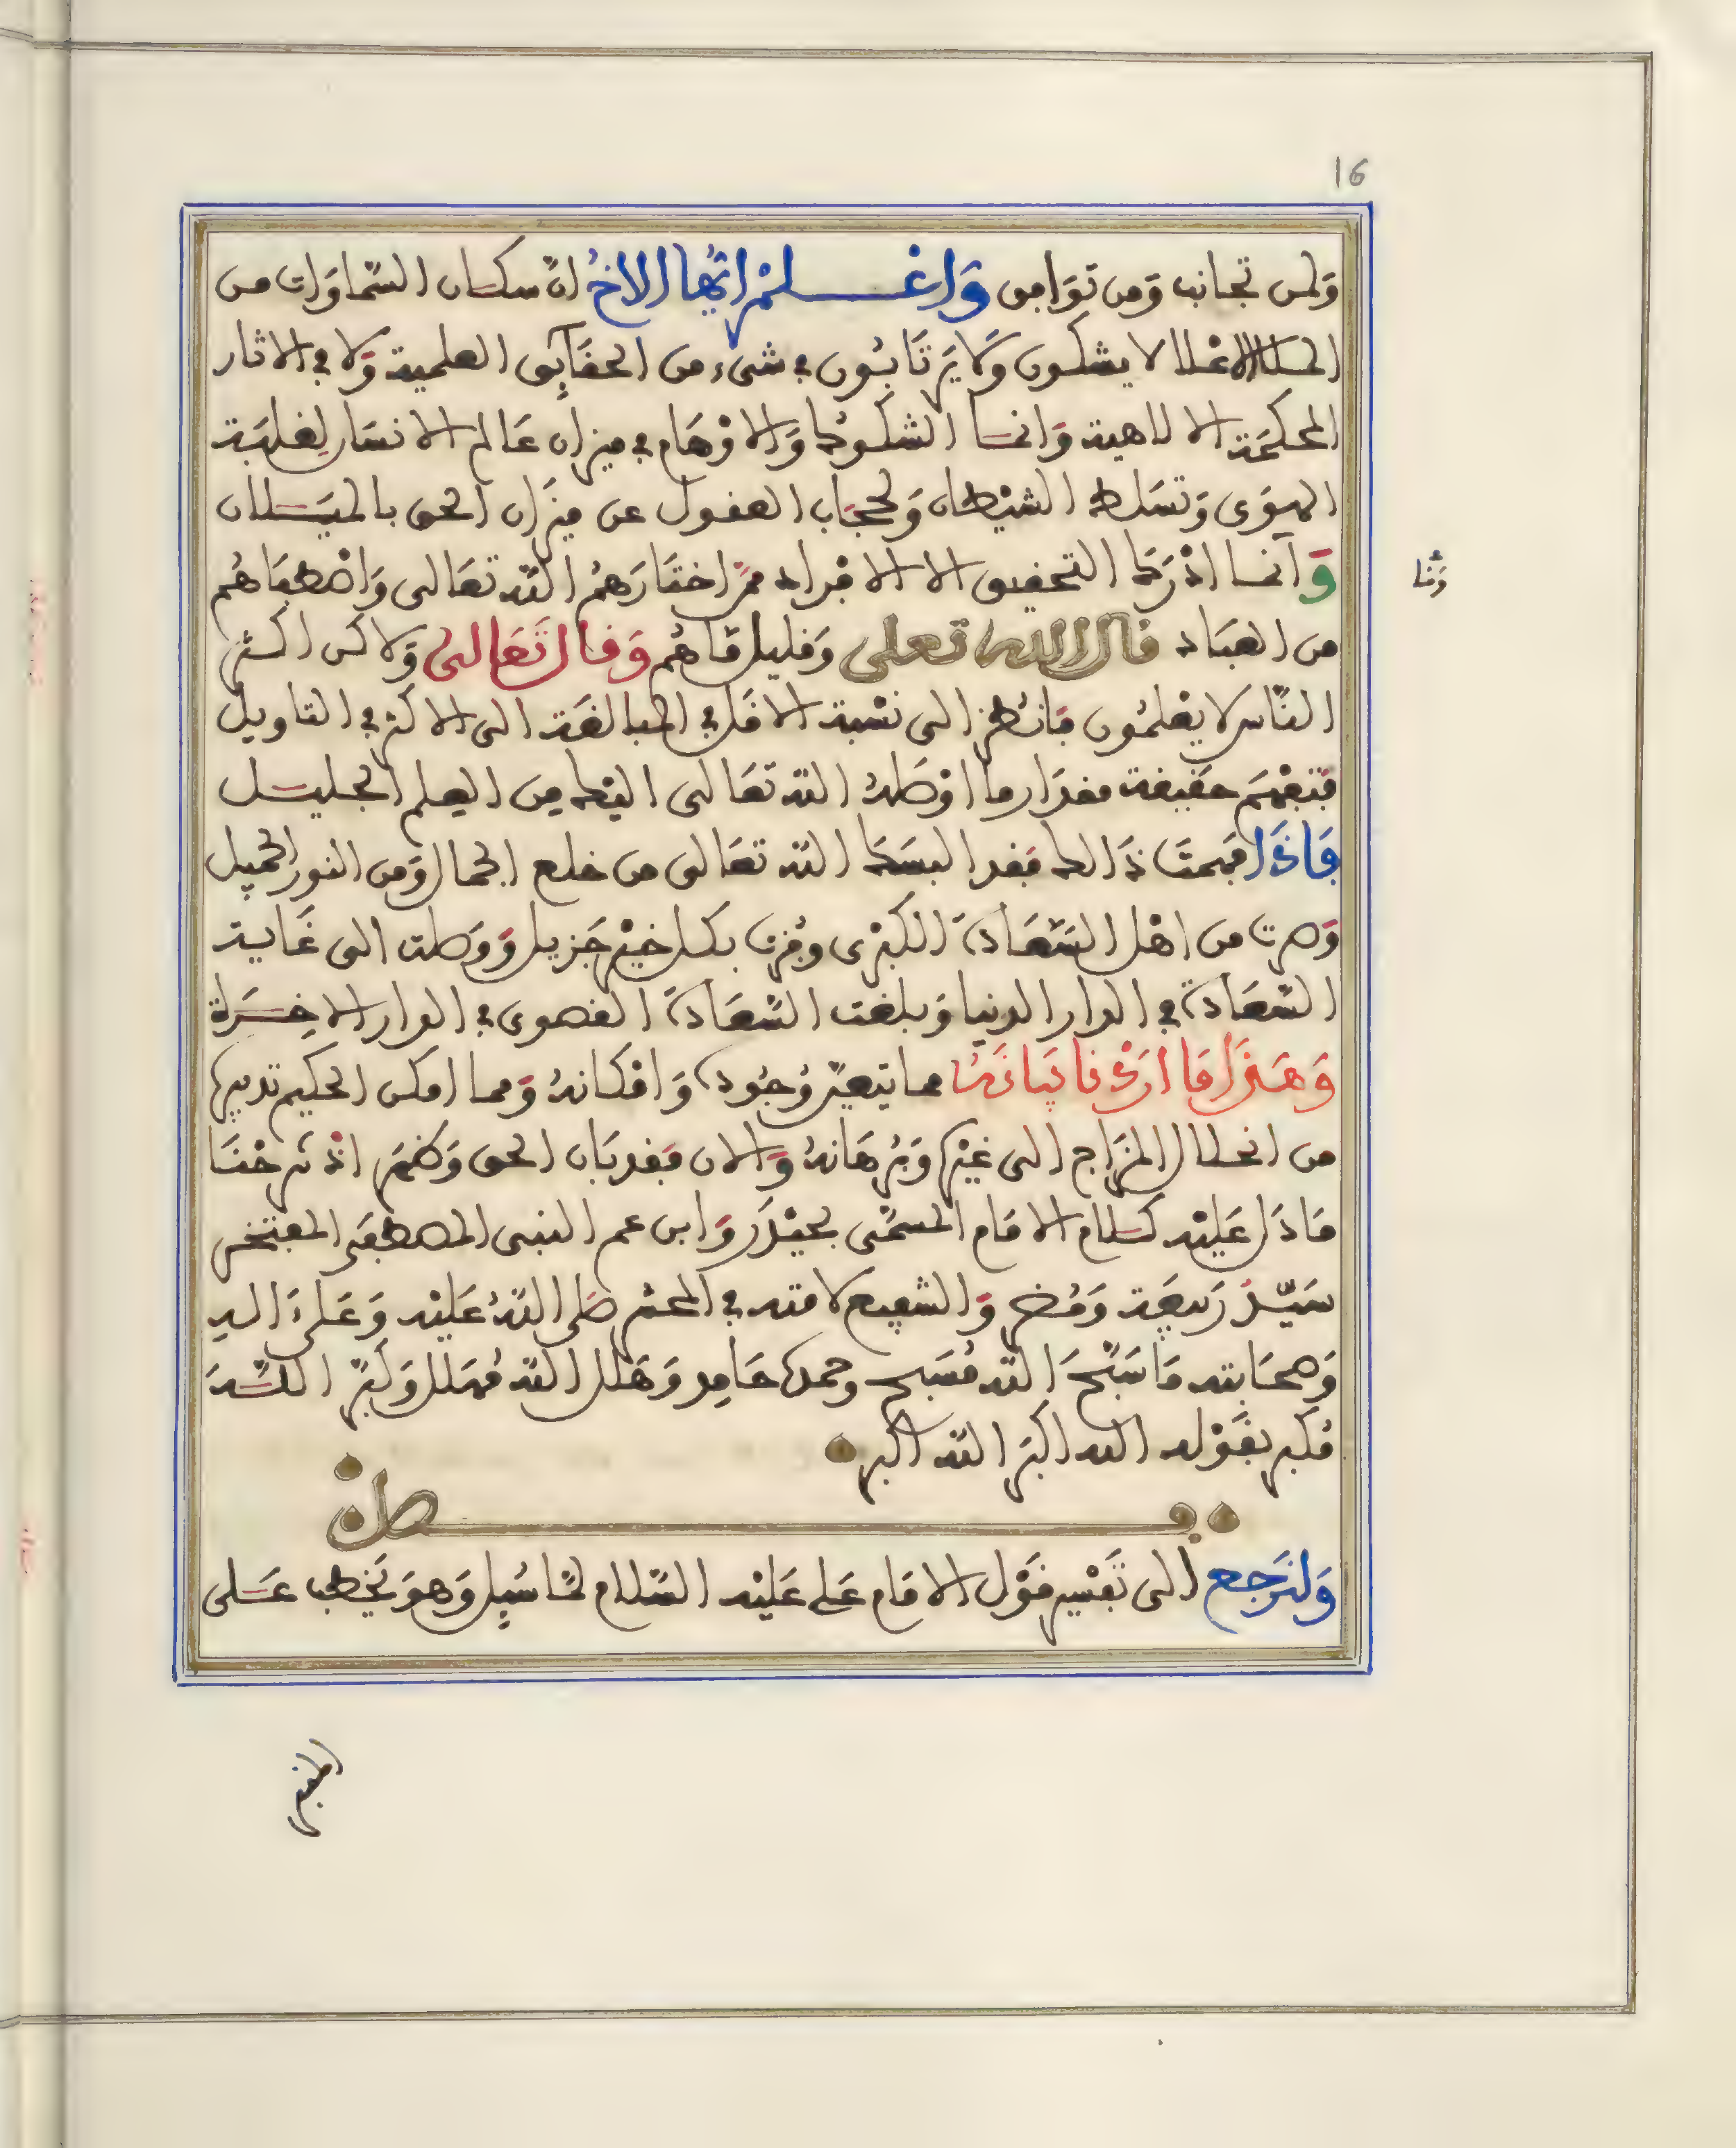 16
ولمن تجانب ومن توافق وَاعْلَمْ ايُّها الاخُ انّ سكان السّماوَات من
الملإ الاعْلا لا يشكون وَلَا يَرْتَابُون في شيء من الحقَايِق العلمية وَلا في الاثار
المحكمَة الالاهية وَانما الشكوك وَالاوْهَام في ميزان عَالم الانسَان لِغلبَة
الهوَى وَتسَلط الشيْطان وَحجَاب العقول عن ميزَان الحق بالميَلان
وَانما ادْرَك التحقيق الا الافراد ممّن اختارَهمُ اللّه تعَالى وَاصْطفاهُم
من العبَاد قال الله تعلى وَقليل مّا هُم وَقال تَعَالى وَلاكن اكثر
النَّاس لا يعْلمُون فانظر الى نسْبة الاقل في المبالغَة الى الاكثر في التاويل
فتفْهَم حَقيقة مقدَار ما اوْصَلهُ اللّه تعَالى اليْك مِن العِلم الجليل
فَاذَا فهمتَ ذَالك فقد البسَك اللّه تعَالى من خلع الجمال وَمن النور الجميل
وَصرت من اهْل السَّعَادَة الكبْرى وفُزت بكل خيْر جَزيل وَوَصلت الى غَاية
السّعَادَة في الدار الدنيا وَبلغت السَّعَادَة القصوى في الدار الاخِرَة
وَهَذَا مَا ارَدْنا بَيَانَهُ مما يتعيّن وُجُوده وَامْكانهُ وَمما امكن الحكيم تدبيره
من انحلال المزَاج الى غيْره وَبُرهَانهُ وَالان فقد بَان الحق وَظهَر اذ شرحْنَا
مَا دَل عَليْه كلام الامَام المسمّى بحيْدَر وَابن عم النبي المصطفَى المفتخر
سَيّد رَبيعَة وَمُضر وَالشفيع لامته في المحشر صَلى اللّهُ عَليْه وَعَلىَ الهِ
وَصحَابته مَا سَبَّحَ اللّه مُسَبح وحمده حَامِد وَهَلل اللّه مُهلل وَكبّر اللّهَ
مُكبر بقَوْله الله اكبَر اللّه اكبر
فصل
وَلنَرجع الى تَفْسير قَوْل الامَام عَلى عَليْه السَّلام لمّا سُيِل وَهوَ يَخطب عَلى
المنبر